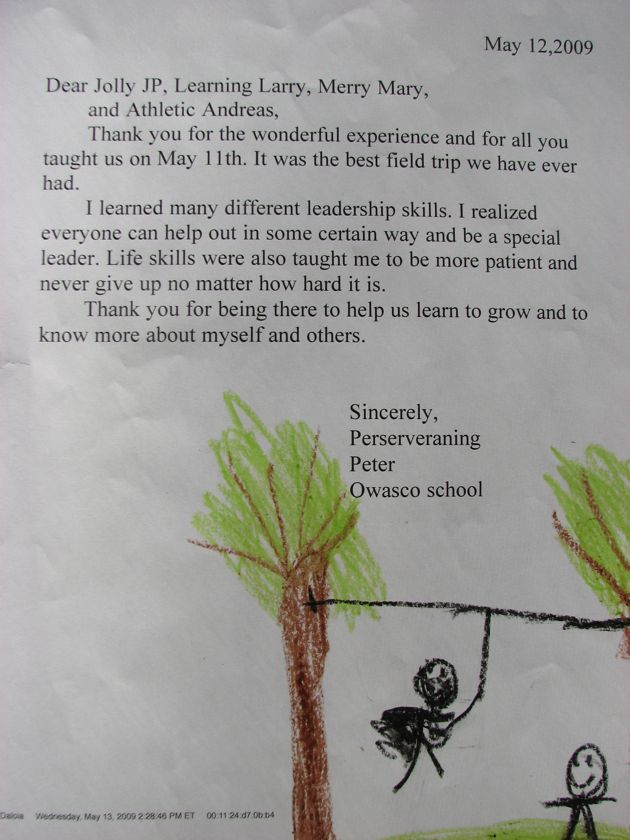 May 12,2009
Dear Jolly JP, Learning Larry, Merry Mary,
and Athletic Andreas,
Thank you for the wonderful experience and for all you
taught us on May 11th. It was the best field trip we have ever
had.
I learned many different leadership skills. I realized
everyone can help out in some certain way and be a special
leader. Life skills were also taught me to be more patient and
never give up no matter how hard it is.
Thank you for being there to help us learn to grow and to
know more about myself and others.
Sincerely,
Perserveraning
Peter
Owasco school
Wednesday, May 13, 2009 2:28:46 PM ET 00:11:24:d7:0b:b4